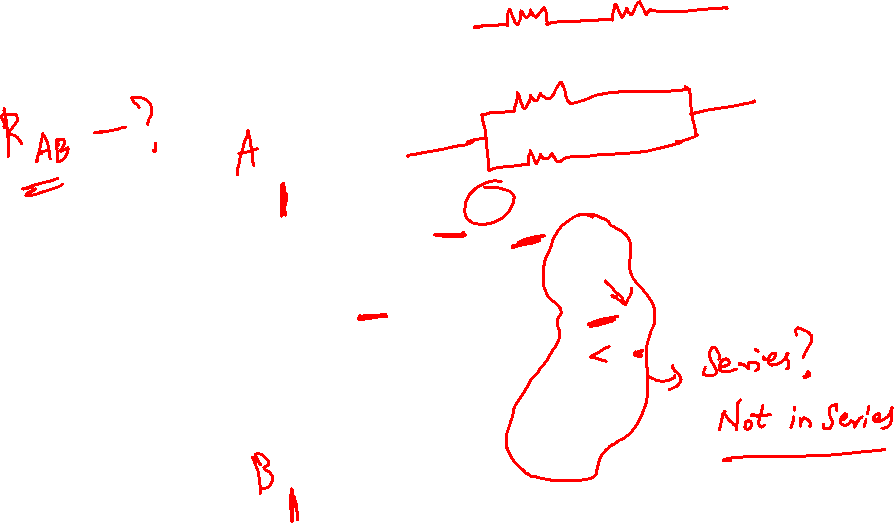 R AB — ?
A
Series?
Not in Series
B